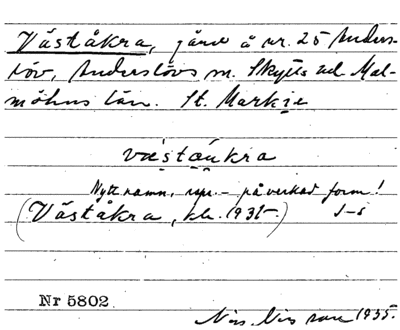 Väståkra, gård å nr. 25 Anders-
löv, Anderslövs sn. Skytts hd Mal-
möhus län. St. Markie
væstaukra
Nytt namn, rspr. - påverkad form!
(Väståkra, kh. 1931-) J-s
Nr 5802
Nils Nilsson 1935.